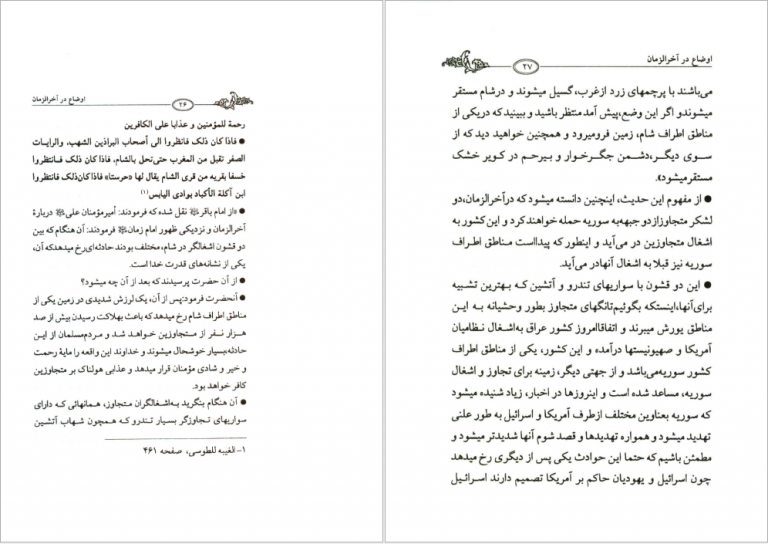 اوضاع در آخرالزمان
۲۶
رحمة للمؤمنین و عذابا علی الکافرین
● فاذا کان ذلک فانظروا الی أصحاب البراذین الشهب، والرایات
الصفر تقبل من المغرب حتی تحل بالشام، فاذا کان ذلک فانتظروا
خسفا بقریه من قری الشام یقال لها «حرستا» فاذا کان ذلک فانتظروا
ابن آکلة الأکباد بوادی الیابس(۱)
● «از امام باقر نقل شده که فرمودند: أمیرمؤمنان علی دربارهٔ
آخرالزمان و نزدیکی ظهور امام زمان فرمودند: آن هنگام که بین
دو قشون اشغالگر در شام، مختلف بودند حادثه‌ای رخ میدهد که آن،
یکی از نشانه‌های قدرت خدا است.
● از آن حضرت پرسیدند که بعد از آن چه میشود؟
● آنحضرت فرمود: پس از آن، یک لرزش شدیدی در زمین یکی از
مناطق اطراف شام رخ میدهد که باعث بهلاکت رسیدن بیش از صد
هزار نفر از متجاوزین خواهد شد و مردم مسلمان از این
حادثه، بسیار خوشحال میشوند و خداوند این واقعه را مایهٔ رحمت
و خیر و شادی مؤمنان قرار میدهد و عذابی هولناک بر متجاوزین
کافر خواهد بود.
● آن هنگام بنگرید به اشغالگران متجاوز، همانهائی که دارای
سواریهای تجاوزگر بسیار تندرو که همچون شهاب آتشین
۱- الغیبه للطوسی، صفحه ۴۶۱
اوضاع در آخرالزمان
۲۷
می‌باشند با پرچمهای زرد از غرب، گسیل میشوند و در شام مستقر
میشوند و اگر این وضع، پیش آمد منتظر باشید و ببینید که در یکی از
مناطق اطراف شام، زمین فرو میرود و همچنین خواهید دید که از
سوی دیگر، دشمن جگرخوار و بیرحم در کویر خشک
مستقر میشود».
● از مفهوم این حدیث، اینچنین دانسته میشود که در آخرالزمان، دو
لشکر متجاوز از دو جبهه به سوریه حمله خواهند کرد و این کشور به
اشغال متجاوزین در می‌آید و اینطور که پیداست مناطق اطراف
سوریه نیز قبلا به اشغال آنها در می‌آید.
● این دو قشون با سواریهای تندرو و آتشین که بهترین تشبیه
برای آنها، اینستکه بگوئیم تانگهای متجاوز بطور وحشیانه به این
مناطق یورش میبرند و اتفاقا امروز کشور عراق به اشغال نظامیان
آمریکا و صهیونیستها درآمده و این کشور، یکی از مناطق اطراف
کشور سوریه می‌باشد و از جهتی دیگر، زمینه برای تجاوز و اشغال
سوریه، مساعد شده است و اینروزها در اخبار، زیاد شنیده میشود
که سوریه بعناوین مختلف از طرف آمریکا و اسرائیل به طور علنی
تهدید میشود و همواره تهدیدها و قصد شوم آنها شدیدتر میشود و
مطمئن باشیم که حتما این حوادث یکی پس از دیگری رخ میدهد
چون اسرائیل و یهودیان حاکم بر آمریکا تصمیم دارند اسرائیل